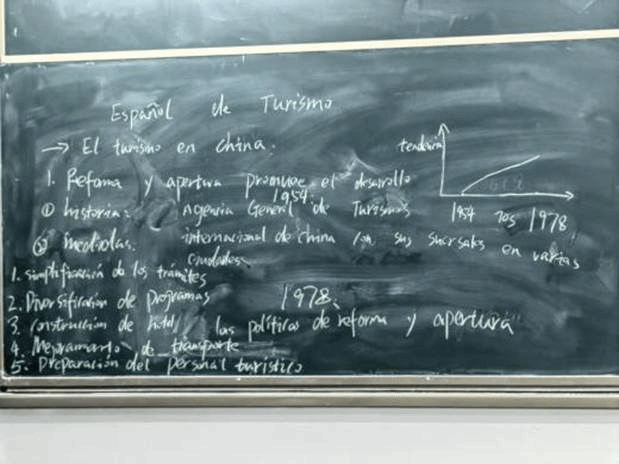 Español de Turismo
→ El turismo en china.
1. Reforma y apertura promueve el desarrollo
① historia: 1954: Agencia General de Turismos
internacional de china con sus sucursales en varias
ciudades.
② medidas:
1. simplificación de los trámites
2. Diversificación de programas
3. construcción de hotel
4. Mejoramiento de transporte
5. preparación del personal turístico
1978:
las políticas de reforma y apertura
tendencia
1954 1978